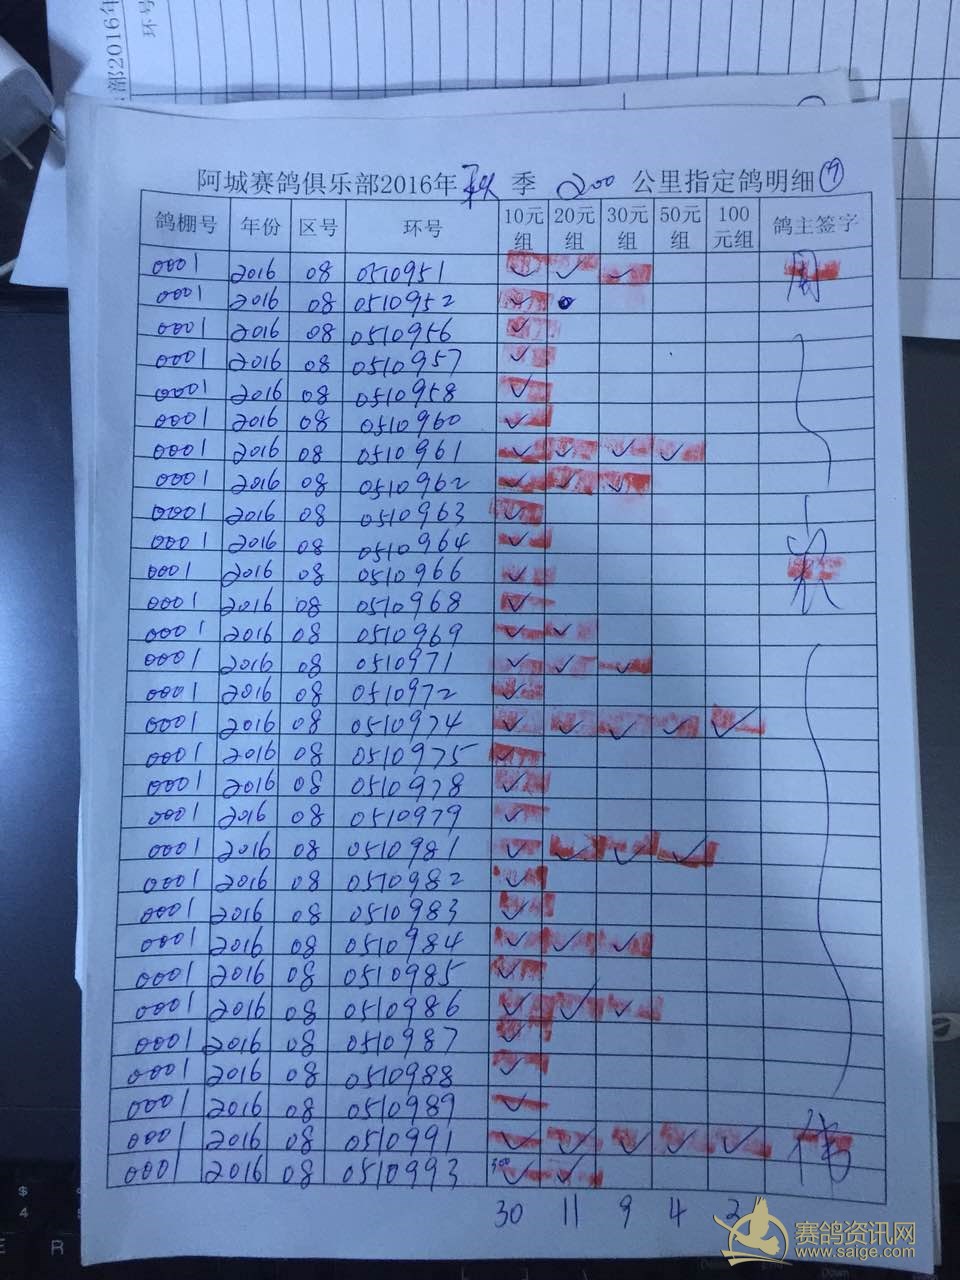 部2016年
环号
阿城赛鸽俱乐部2016年秋季 200 公里指定鸽明细
鸽棚号 年份 区号 环号 10元组 20元组 30元组 50元组 100元组 鸽主签字
0001 2016 08 0510951 ✓ ✓ ✓ 周
0001 2016 08 0510952 ✓
0001 2016 08 0510956 ✓
0001 2016 08 0510957 ✓
0001 2016 08 0510958 ✓
0001 2016 08 0510960 ✓
0001 2016 08 0510961 ✓ ✓ ✓ ✓
0001 2016 08 0510962 ✓ ✓ ✓
0001 2016 08 0510963 ✓
0001 2016 08 0510964 ✓
0001 2016 08 0510966 ✓
0001 2016 08 0510968 ✓
0001 2016 08 0510969 ✓ ✓
0001 2016 08 0510971 ✓ ✓ ✓
0001 2016 08 0510972 ✓
0001 2016 08 0510974 ✓ ✓ ✓ ✓ ✓
0001 2016 08 0510975 ✓
0001 2016 08 0510978 ✓
0001 2016 08 0510979 ✓
0001 2016 08 0510981 ✓ ✓ ✓ ✓
0001 2016 08 0510982 ✓
0001 2016 08 0510983 ✓
0001 2016 08 0510984 ✓ ✓ ✓
0001 2016 08 0510985 ✓
0001 2016 08 0510986 ✓ ✓ ✓
0001 2016 08 0510987 ✓
0001 2016 08 0510988 ✓
0001 2016 08 0510989 ✓
0001 2016 08 0510991 ✓ ✓ ✓ ✓ ✓ 伟
0001 2016 08 0510993 300 ✓ ✓
30 11 9 4 2
赛鸽资讯网
www.saige.com